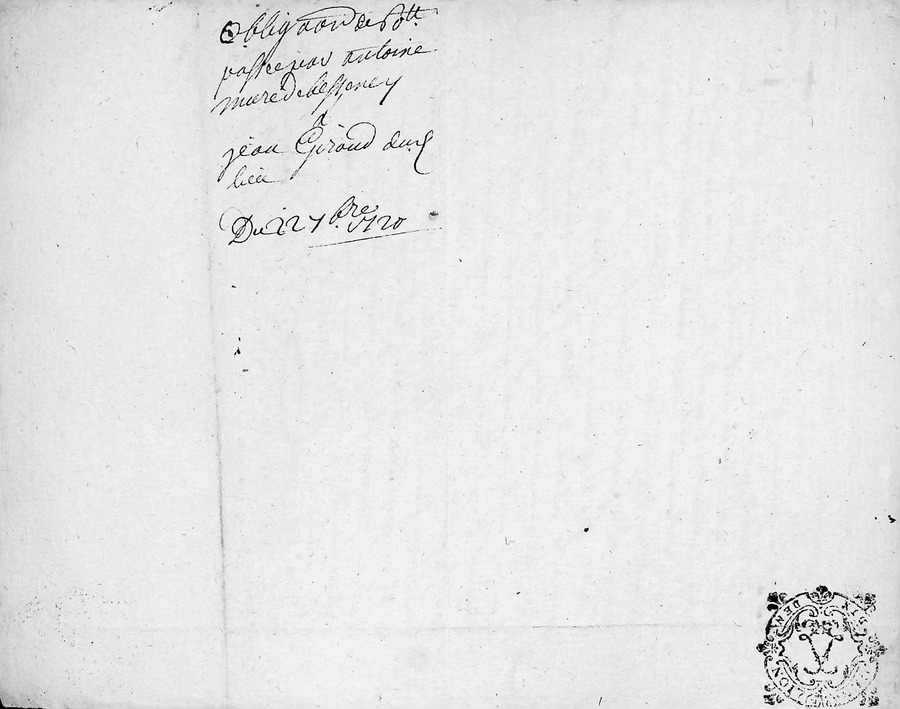 Obligaon de 60tt
passee par antoine
mure de bessenay
a
jean Giroud dud
lieu
Du 22 7bre 1720